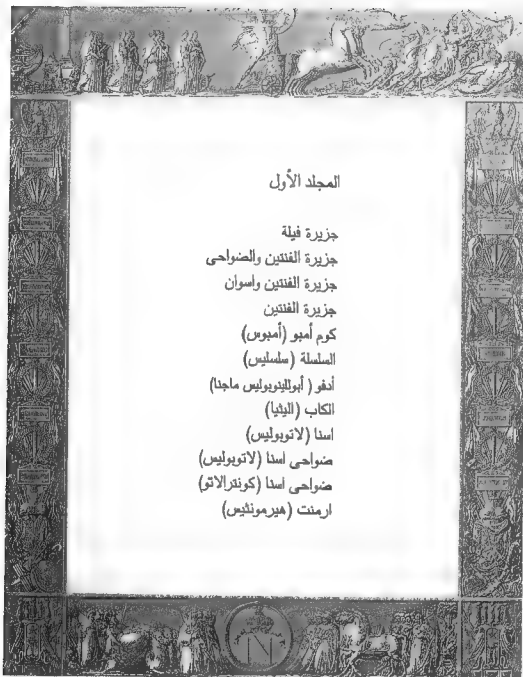 المجلد الأول
جزيرة فيلة
جزيرة الفنتين والضواحى
جزيرة الفنتين واسوان
جزيرة الفنتين
كوم أمبو (أمبوس)
السلسلة (سلسليس)
أدفو ( أبوللينوبوليس ماجنا)
الكاب (اليثيا)
اسنا (لاتوبوليس)
ضواحى اسنا (لاتوبوليس)
ضواحى اسنا (كونترالاتو)
ارمنت (هيرمونثيس)
N